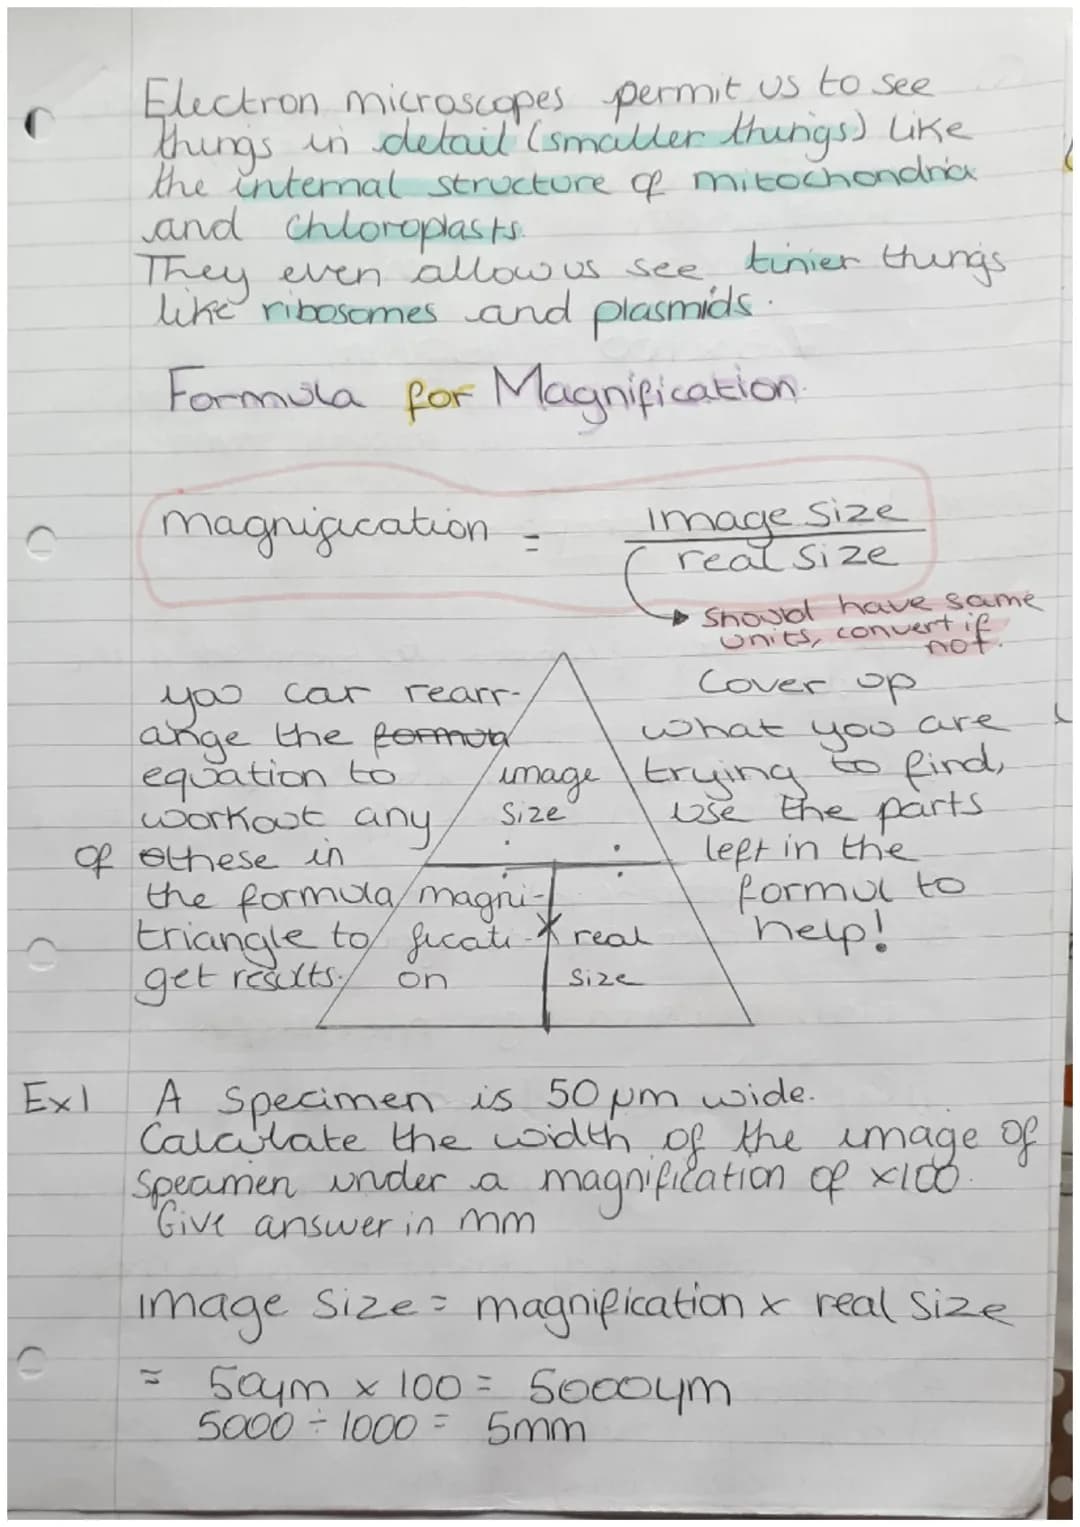 Electron microscopes permit us to see
things in detail (smaller things) like
the internal structure of mitochondria
and chloroplasts.
They even allow us see tinier things
like ribosomes and plasmids.
Formula for Magnification.
magnification = image size
real size
Should have same
units, convert if
not.
you can rearr-
ange the formula
equation to
workout any
of these in
the formula
triangle to
get results.
image
size
magni-
ficati-
on
×
real
size
Cover up
what you are
trying to find,
use the parts
left in the
formul to
help!
Ex1 A specimen is 50 µm wide.
Calculate the width of the image of
specimen under a magnification of ×100.
Give answer in mm
image size = magnification × real size
= 50µm × 100 = 5000µm
5000 ÷ 1000 = 5mm